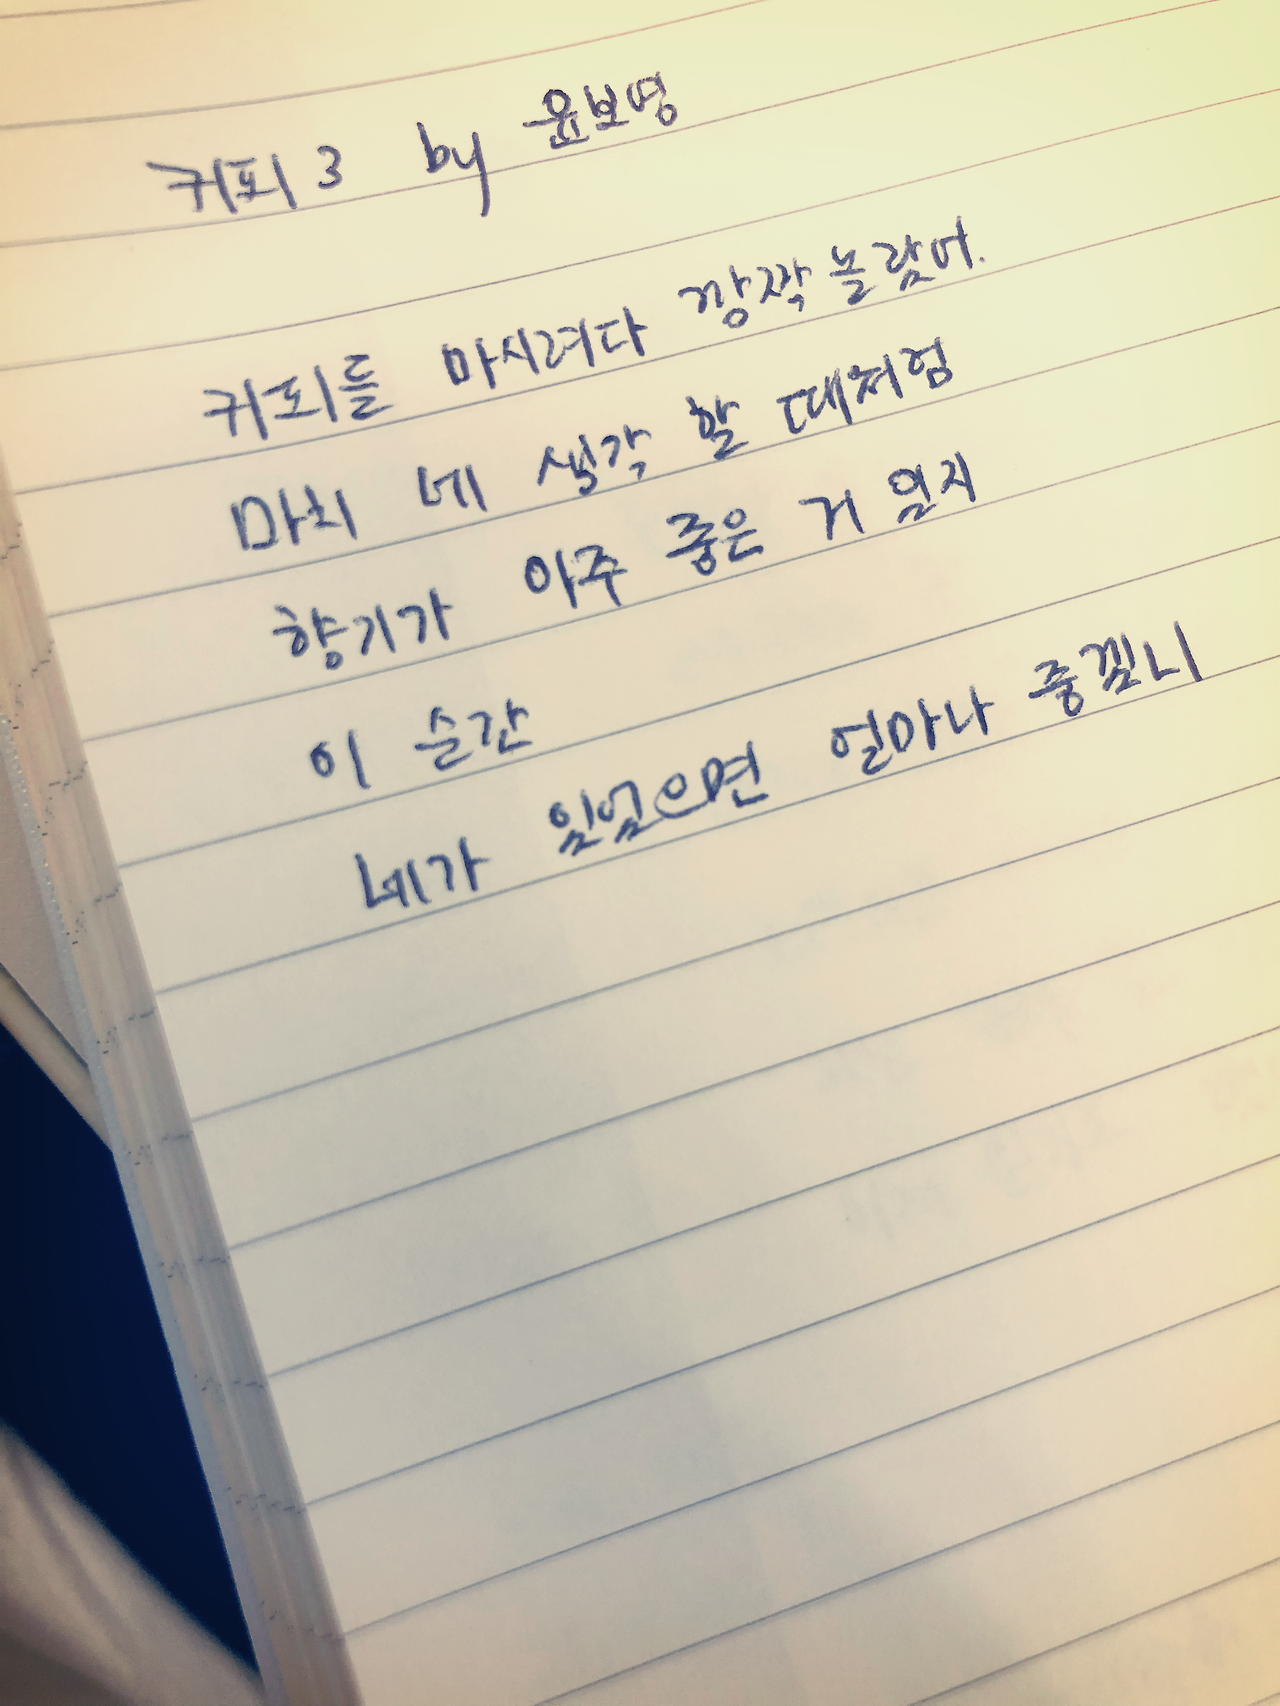 커피 3 by 윤보영
커피를 마시려다 깜짝 놀랐어.
마치 네 생각 할 때처럼
향기가 아주 좋은 거 있지
이 순간
네가 있었으면 얼마나 좋겠니